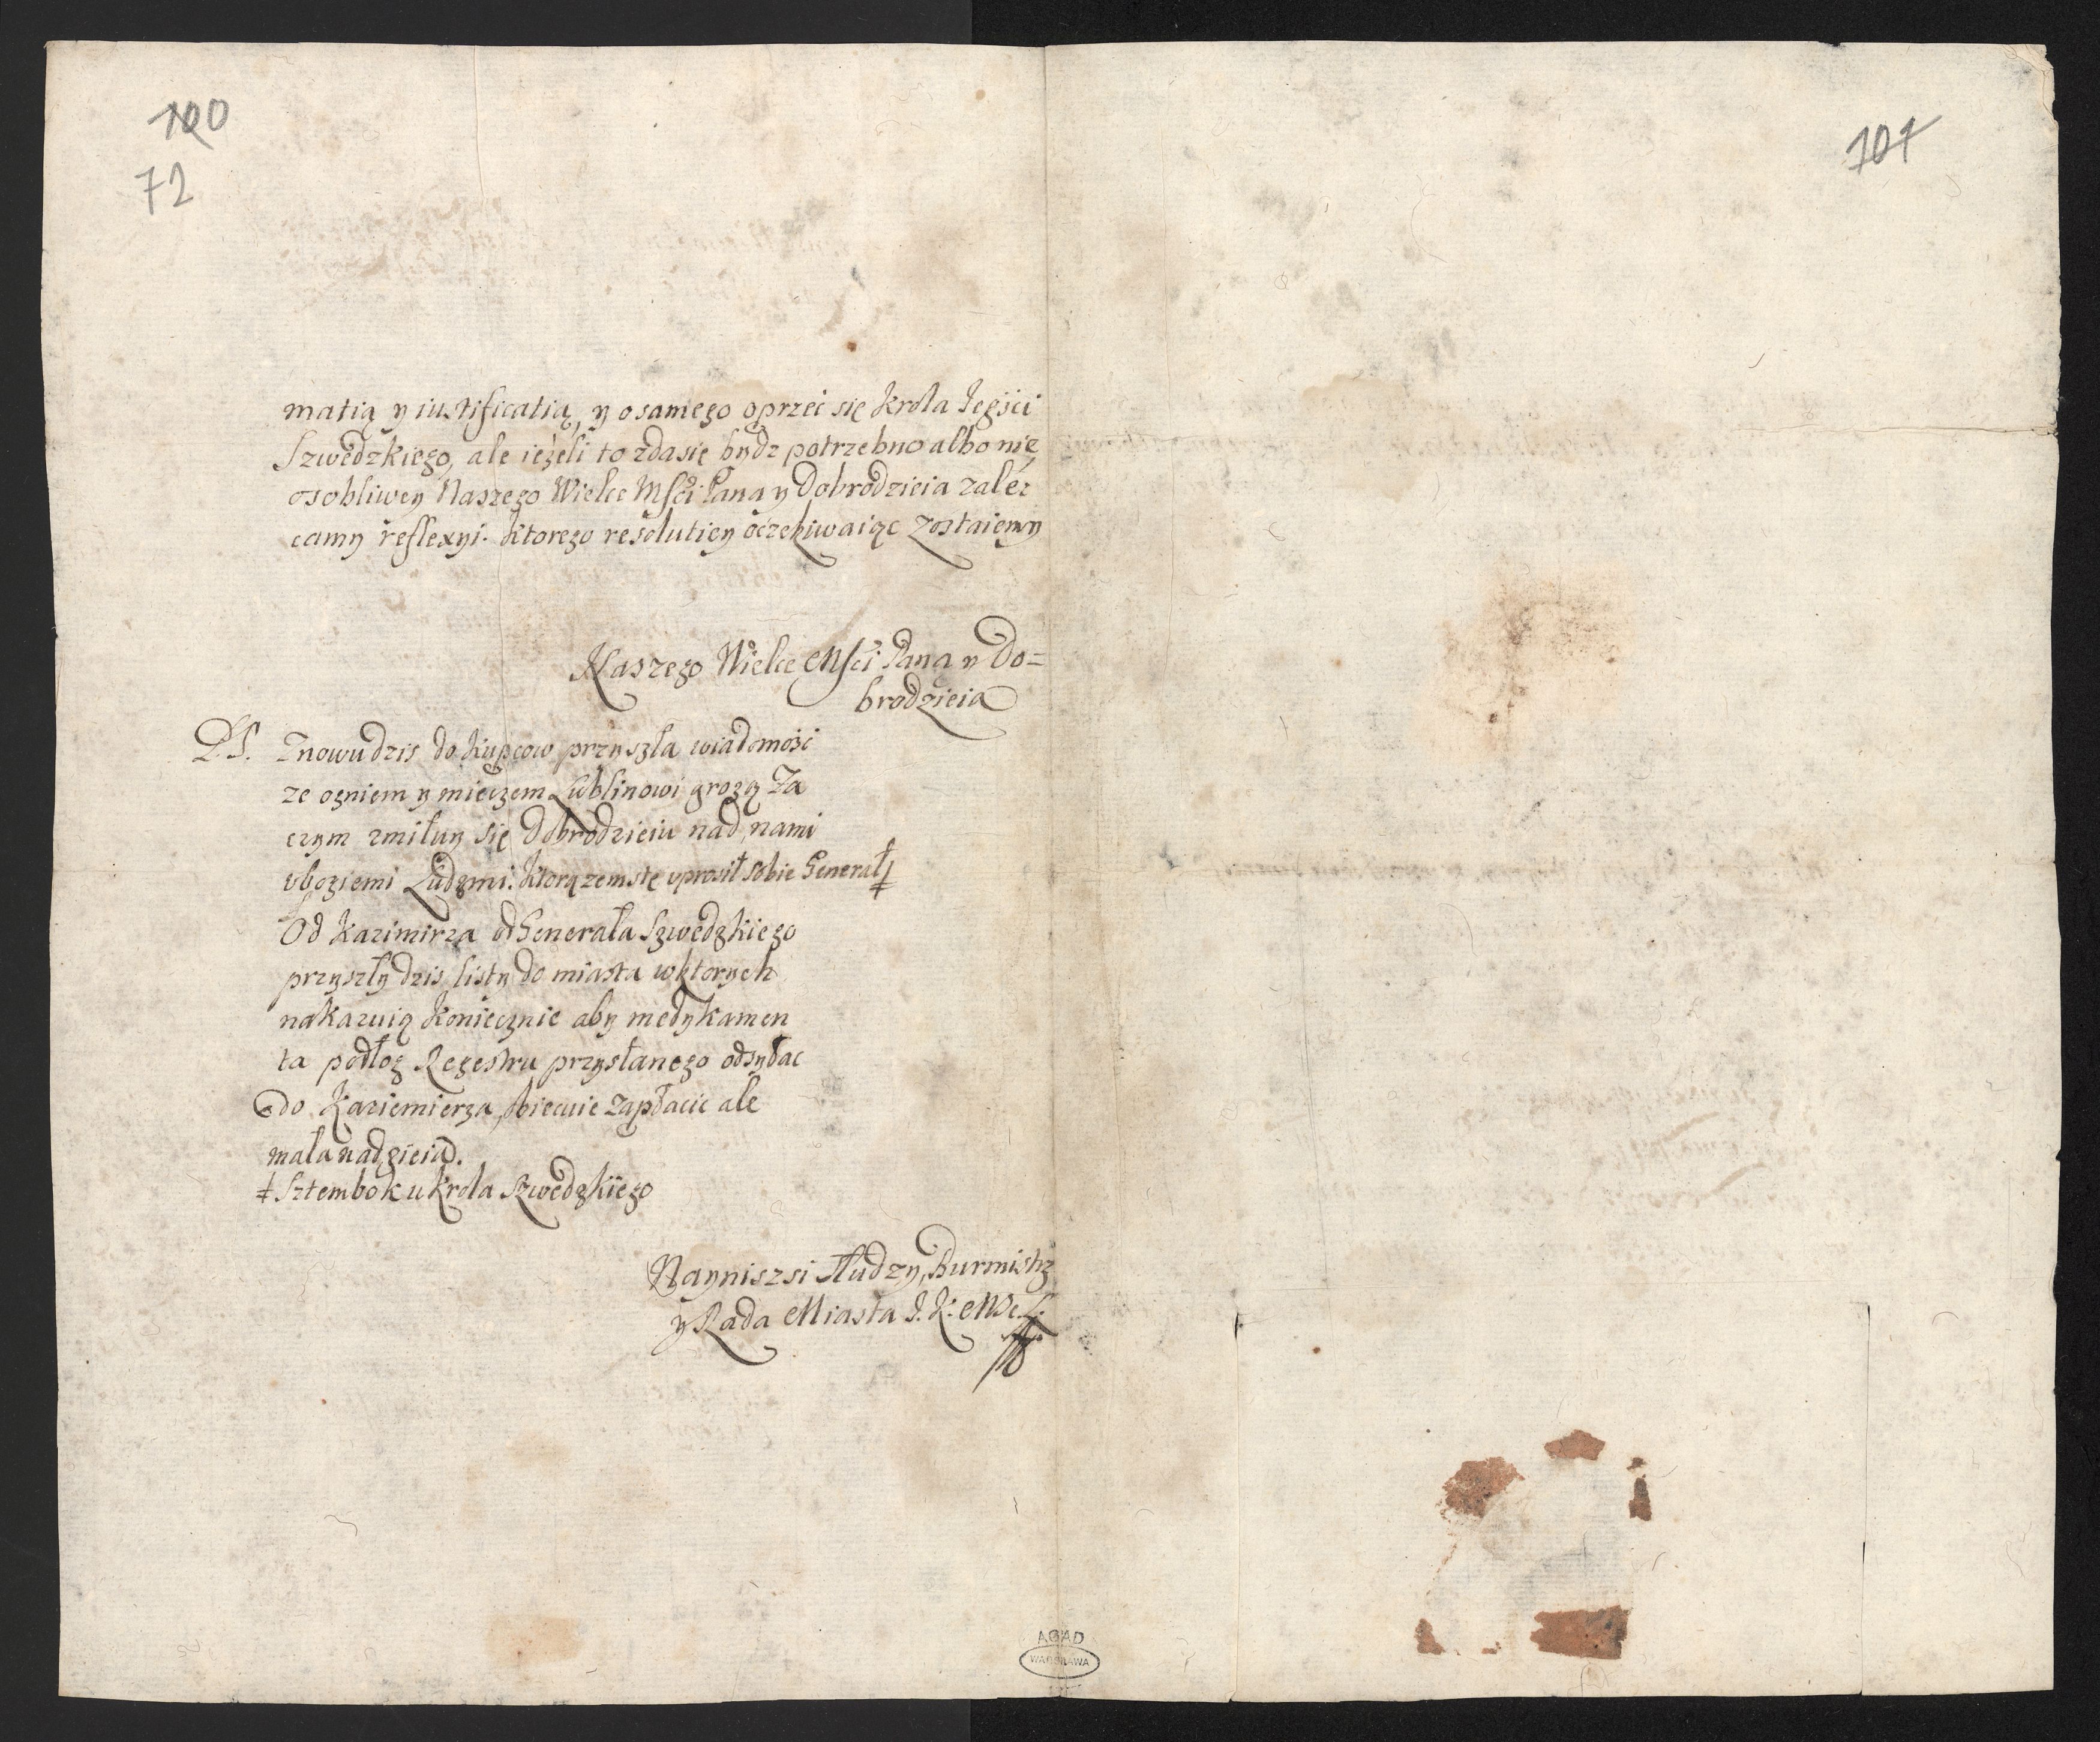 100
72
101
matią y iustificatią, y o samego oprzeć się Krola Jegści
Szwedzkiego, ale ieżeli to zda się bydz potrzebno albo nię
osobliwey Naszego Wielce Mści Pana y Dobrodzieia zale⸗
camy reflexyi. Ktorego resolutiey oczekiwaiąc zostaiemy
Naszego Wielce Mści Pana y Do=
brodzieia
P.S. Znowu dzis do Kupcow przyszła wiadomość
ze ogniem y mieczem Lublinowi grożą Za
czym zmiłuy się Dobrodzieiu nad nami
vbogiemi Ludzmi. Ktorą zemstę vprosił sobie Generał ‡
Od Kazimirza od Generała Szwedzkiego
przyszły dzis listy do miasta w ktorych
nakazuią koniecznie aby medykamen
ta podłog Regestru przysłanego odsyłac
do Kaziemierza, obiecuie zapłacic ale
mała nadzieia.
‡ Sztembok u Krola Szwedzkiego
Nayniszsi Słudzy, Burmistrz
y Rada Miasta J. K. Mści
AGAD
WARSZAWA